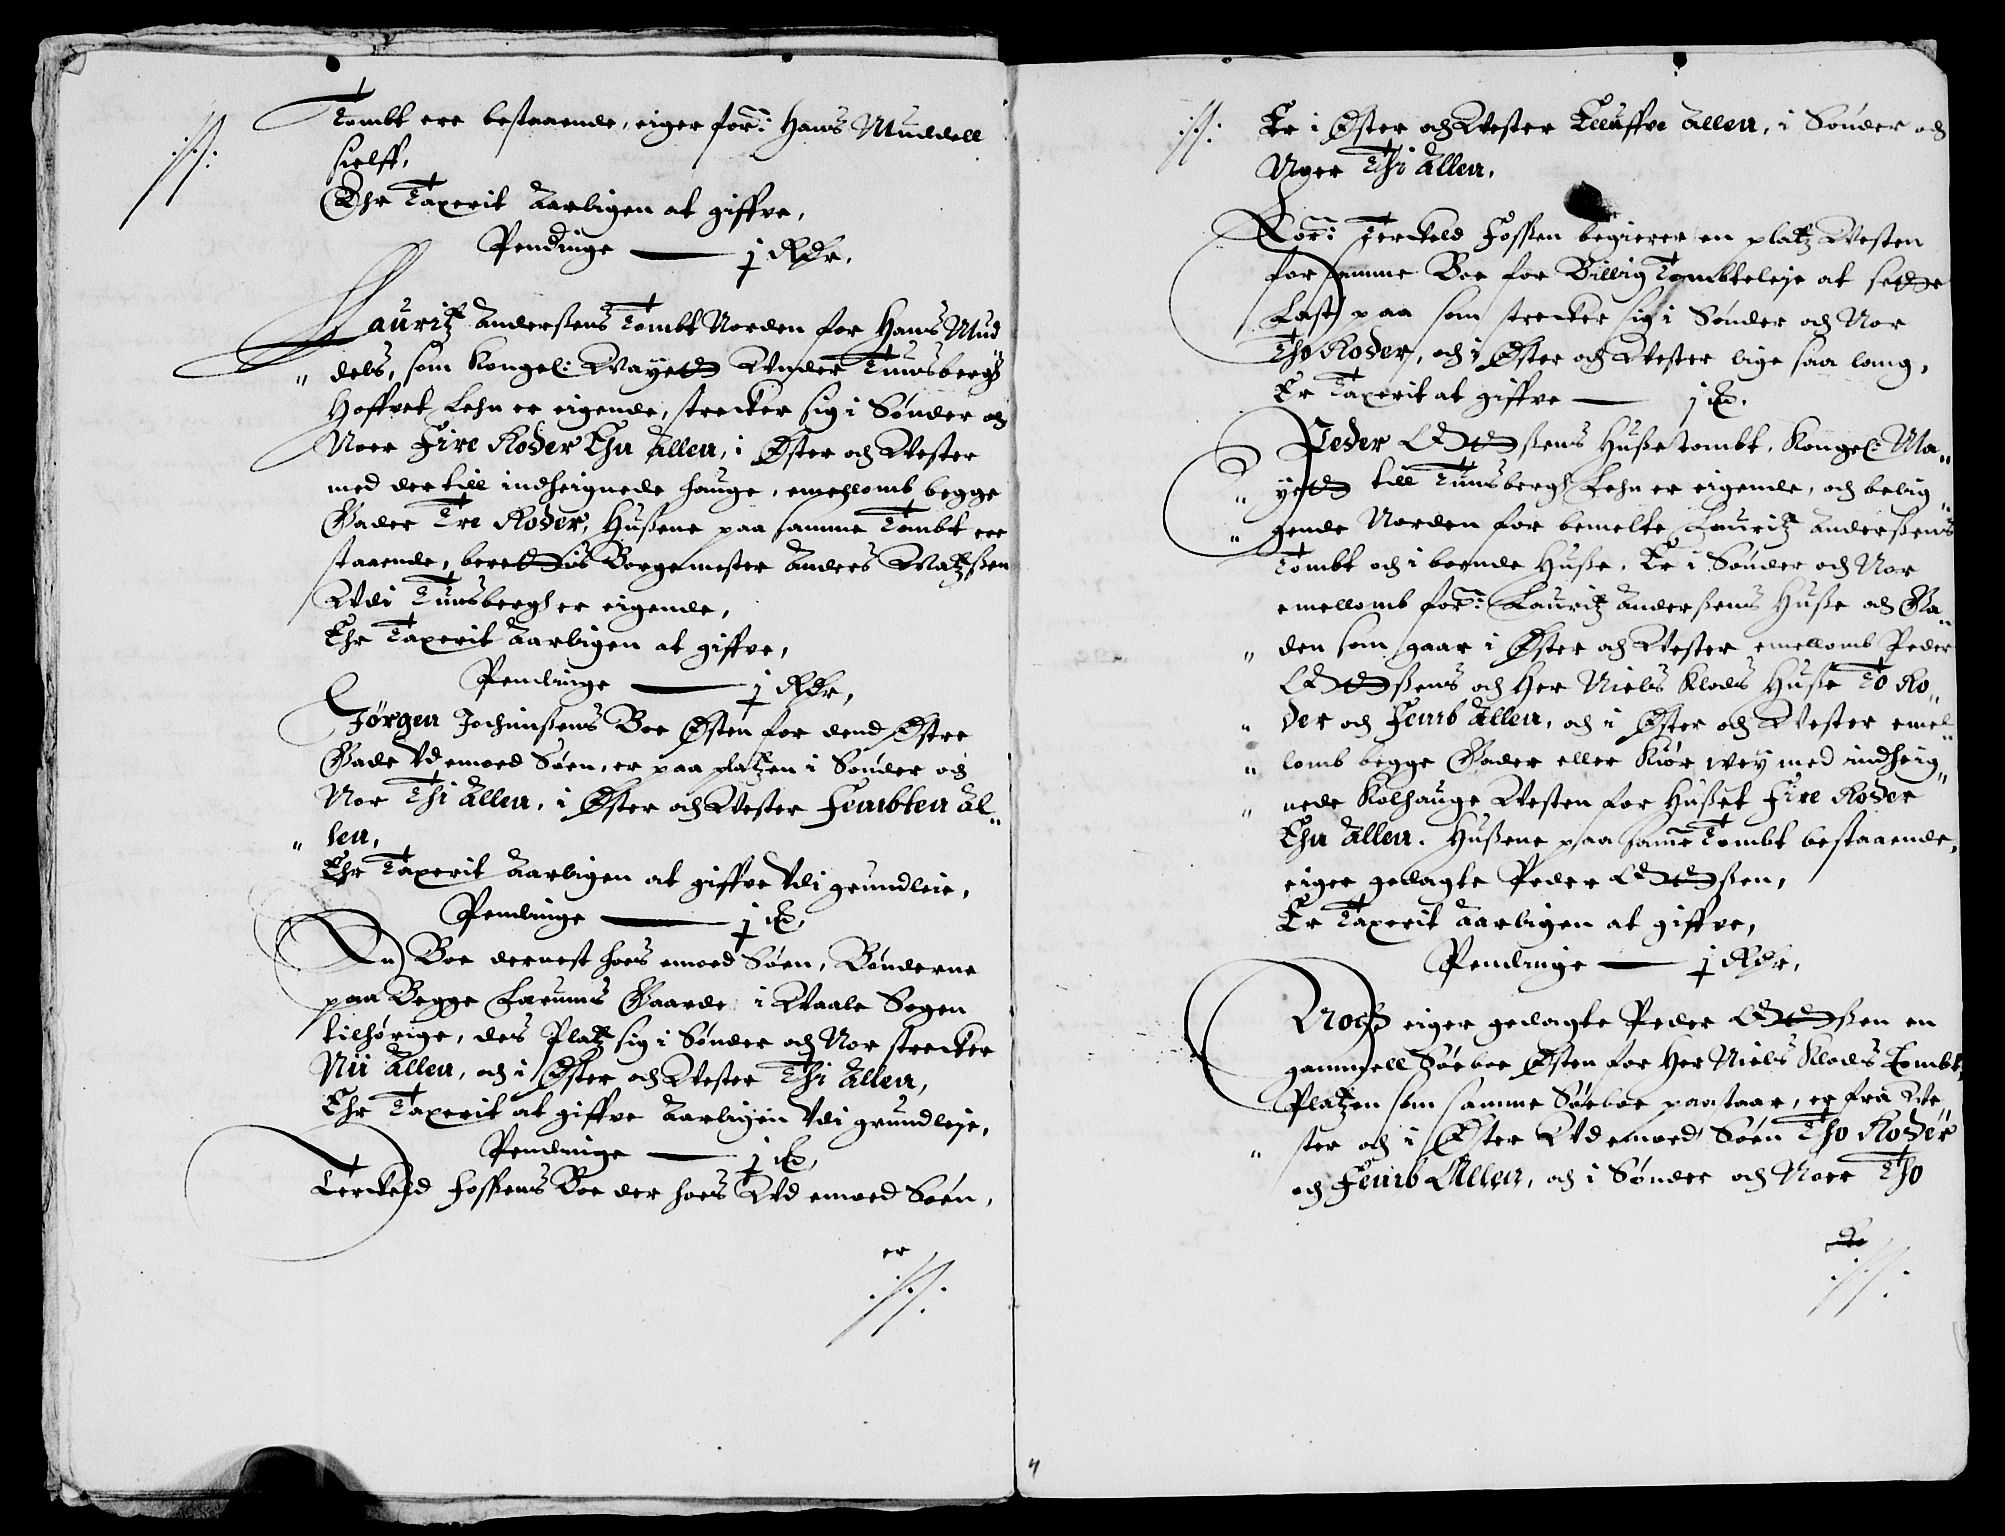 Tombt ere bestaaende, eiger for: Hans Muddell
sielff,
Ehr Taxerit Aarligen at giffve,
Pendinge — j Rdr.
Lauritz Anderßens Tombt Norden for Hans Mud
" dels, som Kongel: Mayetts Under Tunsbergs
Hoffvet Lehn er eigende, strecker sig i Sønder och
Noer Fire Roder Ehn Allen, i Øster och Vester
med der till indheignede hauge, emellomb begge
Gader Tre Roder, Hußene paa samme Tombt ere
staaende, berettis Borgemester Anders Matzßen
Udi Tunsbergh er eigende,
Ehr Taxerit Aarligen at giffve,
Pendinge — j Rdr,
Jørgen Jochimßens Boe Østen for dend Østre
Gade Ud emoed Søen, er paa platzen i Sønder och
Nor Thi Allen, i Øster och Vester Fembten Al„
" len,
Ehr Taxerit Aarligen at giffve Udi grundleie,
Pendinge — j
En Boe dernest hoes emoed Søen, Bønderne
paa Begge Lærums Gaarde i Vaale Sogen
tilhørige, des Platz sig i Sønder och Nor strecker
Nii Allen, och i Øster och Vester Thi Allen,
Ehr Taxerit at giffve Aarligen Udi grundleje,
Pendinge — j
Terckeld Foßßens Boe der hoes Ud emoed Søen,
er
Er i Øster och Vester Elluffve Allen, i Sønder och
Noer Thi Allen.
For: Terckeld Foßßen begierer en platz Vesten
for samme Boe for Billig Tombteleje at sette
Last paa som strecker sig i Sønder och Nor
Tho Roder, och i Øster och Vester lige saa lang,
Er Taxerit at giffve — j
Peder ßens Hußetombt, Kongel: Ma„
" yetts till Tunsbergh Lehn er eigende, och belig„
" gende Norden for bemelte Lauritz Anderßens
Tombt och i boende Huße, Er i Sønder och Nor
emellomb for: Lauritz Anderßens Huße och Ga„
" den som gaar i Øster och Vester emellomb Peder
ßens och Her Niels Klods Huße To Ro„
" der och Femb Allen, och i Øster och Vester emel„
" lomb begge Gader eller Kiør wey med indheig„
" nede Kolhauge Vesten for Hußet Fire Roder
Ehn Allen. Hußene paa samme Tombt bestaaende,
eiger gedagte Peder ßen,
Er Taxerit Aarligen at giffve,
Pendinge — j Rdr,
Noch eiger gedagte Peder ßen en
gammell Søeboe Østen for Her Niels Klods Tombt,
Platzen som samme Søeboe paastaar, er fra Ve„
" ster och i Øster Ud emoed Søen Tho Roder
och Femb Allen, och i Sønder och Noer Tho